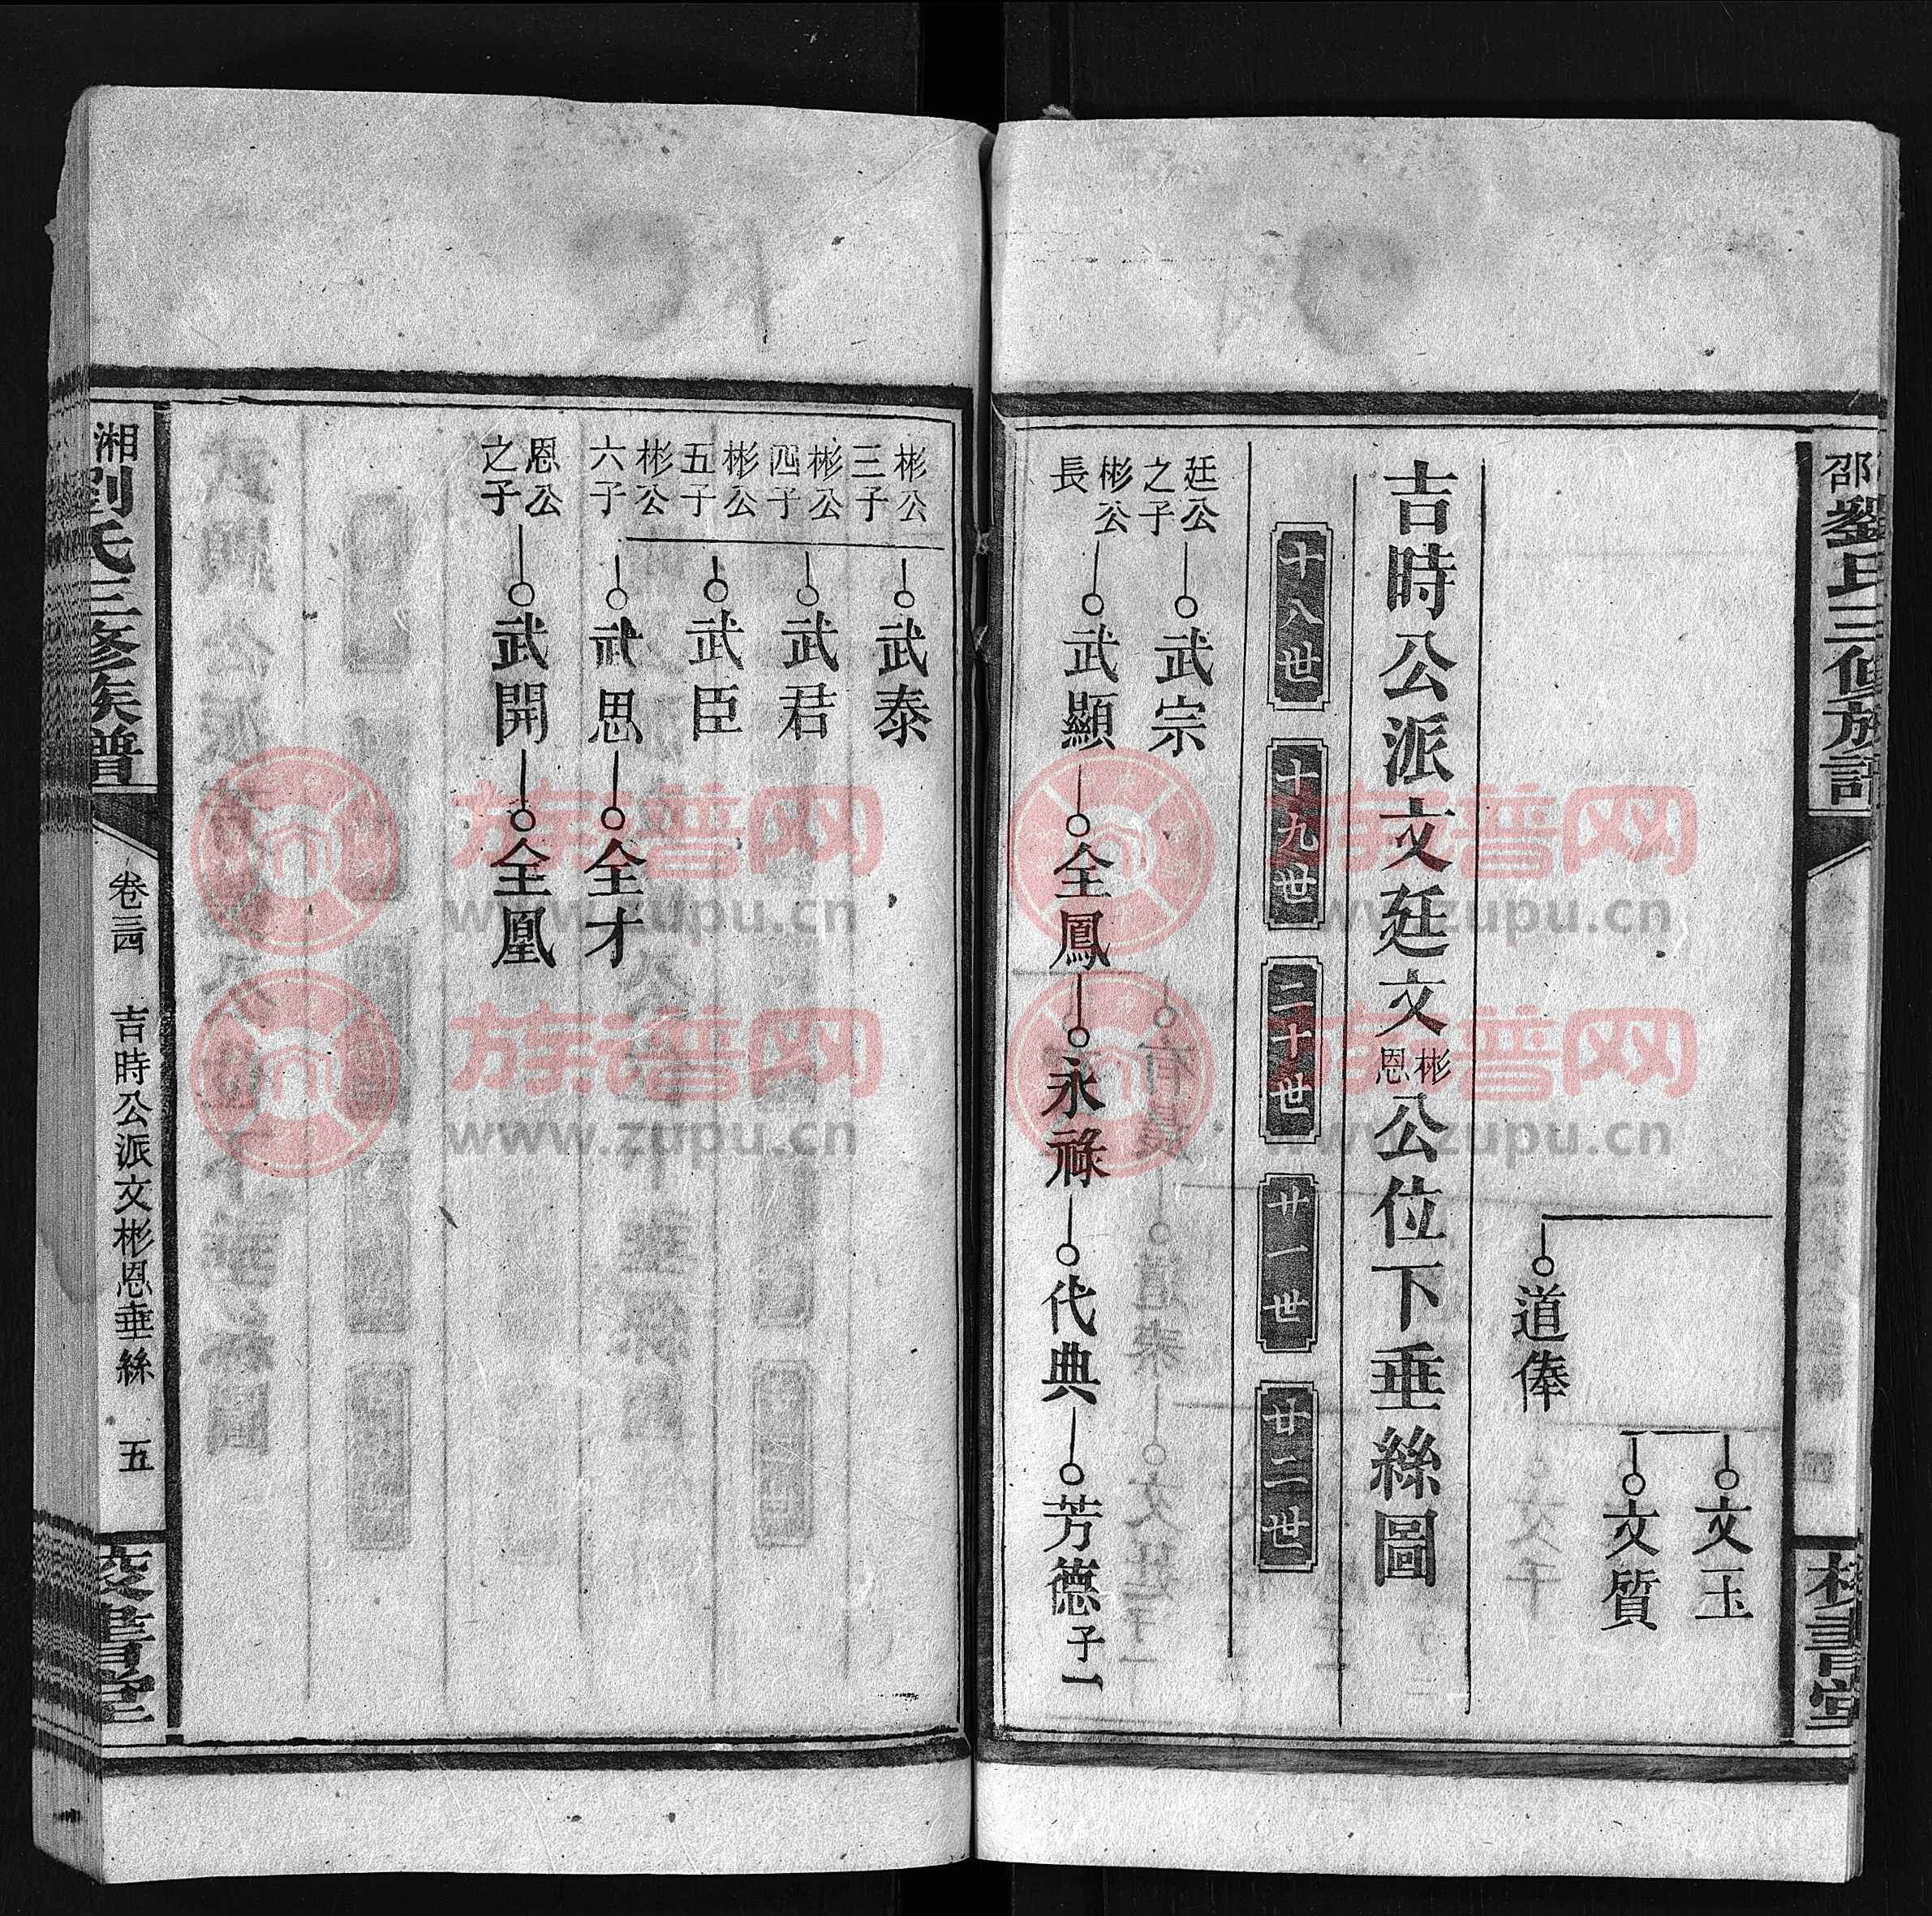 邵劉氏三修族譜
校書堂
文玉
文質
道俸
吉時公派文廷文彬恩公位下垂絲圖
十八世
十九世
二十世
廿一世
廿二世
廷公之子
武宗
彬公長
武顯
全鳳
永祿
代典
芳德子一
彬公三子
武泰
彬公四子
武君
彬公五子
武臣
彬公六子
武思
全才
恩公之子
武開
全凰
湘劉氏三修族譜
卷三四
吉時公派文彬恩垂絲
五
族谱网
www.zupu.cn
族谱网
www.zupu.cn
族谱网
www.zupu.cn
族谱网
www.zupu.cn